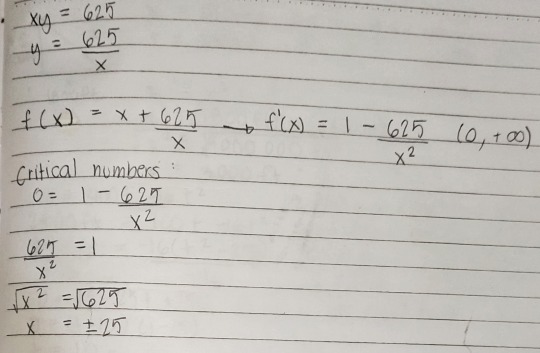 xy = 625
y = 625/x
f(x) = x + 625/x → f'(x) = 1 - 625/x² (0, +∞)
Critical numbers :
0 = 1 - 625/x²
625/x² = 1
√x² = √625
x = ±25